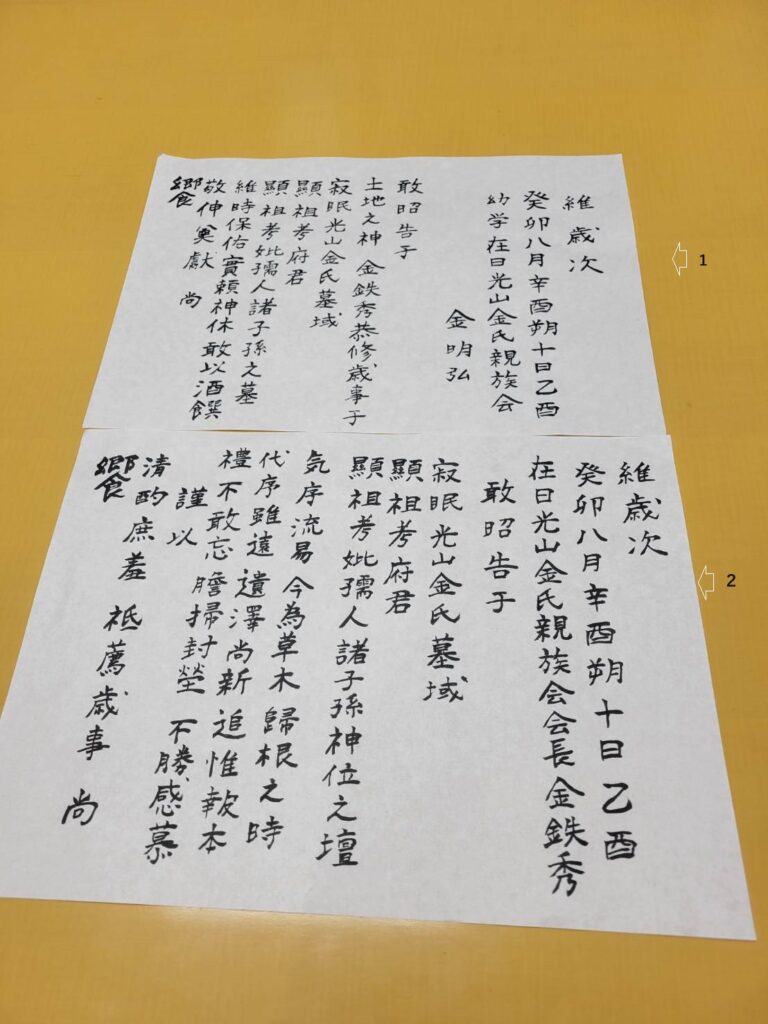 維歳次
癸卯八月辛酉朔十日乙酉
幼学在日光山金氏親族会
金明弘
敢昭告于
土地之神 金鉄秀恭修歳事于
寂眠光山金氏墓域
顯祖考府君
顯祖考妣孺人諸子孫之墓
維時保佑實頼神休敢以酒饌
敬伸奠獻 尚
饗
1
維歳次
癸卯八月辛酉朔十日乙酉
在日光山金氏親族会会長金鉄秀
敢昭告于
寂眠光山金氏墓域
顯祖考府君
顯祖考妣孺人諸子孫神位之壇
気序流易 今為草木 歸根之時
代序雖遠 遺澤尚新 追惟報本
禮不敢忘 瞻掃封塋 不勝感慕
謹以
清酌庶羞 祗薦歳事 尚
饗
2